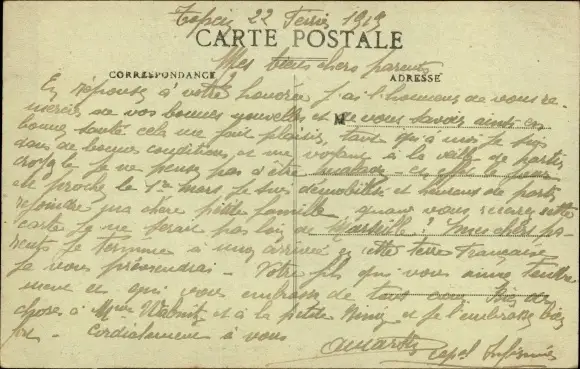 22 1919
CARTE POSTALE
Mes biens chers parents
CORRESPONDANCE
ADRESSE
En réponse à votre honorée j'ai l'honneur de vous re-
mercier de vos bonnes nouvelles et de vous savoir ainsi en
bonne santé cela me fait plaisir, tant qu'à moi je suis
dans de bonnes conditions et me voyant à la veille de partir
je ne pense pas d'être malade
proche le 1er mars je suis démobilisé et heureux de partir
rejoindre ma chère petite famille, quand vous recevrez cette
carte je ne serai pas loin de Marseille. mes chers pa-
rents je termine à mon arrivée en cette terre Française
je vous préviendrai - Votre fils qui vous aime tendre-
ment et qui vous embrasse de tout cœur. Bien des
choses à Mme et à la petite et je l'embrasse bien
fort - Cordialement à vous